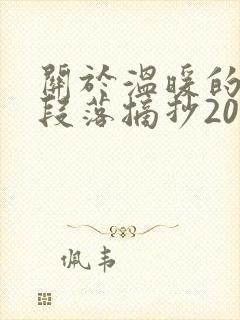 關於溫暖的
段落摘抄20
佩韦